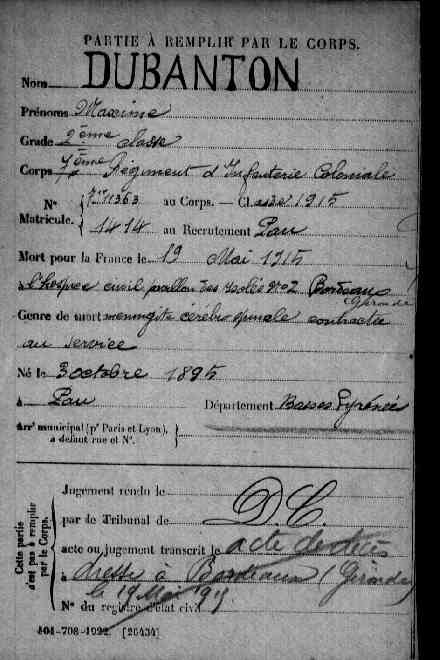 PARTIE À REMPLIR PAR LE CORPS.
Nom DUBANTON
Prénoms Maxime
Grade 2ème classe
Corps 7ème Régiment d'Infanterie Coloniale
N° Matricule. { 11363 au Corps. — Classe 1915
1414 au Recrutement Pau
Mort pour la France le 19 Mai 1915
à l'hospice civil pavillon des isolés N°2 Bordeaux
Gironde
Genre de mort meningite cérébro spinale contractée
au service
Né le 3 octobre 1895
à Pau Département Basses Pyrénées
Arrt municipal (pr Paris et Lyon), à défaut rue et N°. }
Cette partie n'est pas à remplir par le Corps.
Jugement rendu le
par le Tribunal de D.C.
acte ou jugement transcrit le acte de décès
à dressé à Bordeaux (Gironde)
le 19 Mai 1915
N° du registre d'état civil
101-708-1922. [26434]